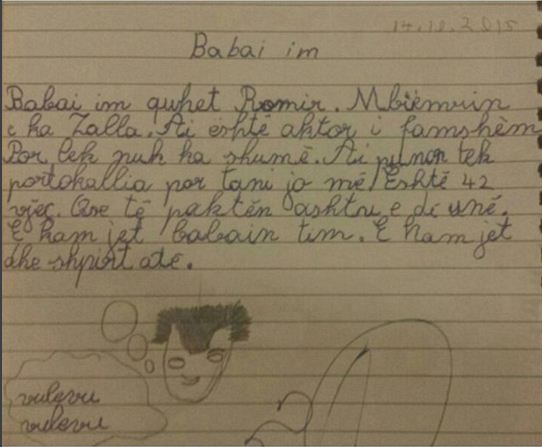 14.10.2015
Babai im
Babai im quhet Romir. Mbiemrin
e ka Zalla. Ai eshtë aktor i famshëm
Por lek nuk ka shumë. Ai punon tek
portokallia por tani jo më. Eshtë 42
vjeç. Ose të paktën ashtu e di unë.
E kam jet babain tim. E kam jet
dhe shpirt atë.
vulevu
vulevu